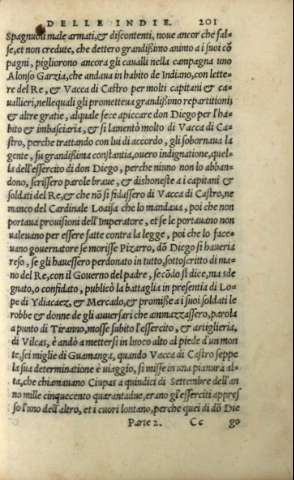 DELLE INDIE. 201
Spagnuoli male armati, & discontenti, noue ancor che fal-
se, et non credute, che dettero grandissimo animo a i suoi cõ
pagni, pigliorono ancora gli caualli nella campagna uno
Alonso Garzia, che andaua in habito de Indiano, con lette-
re del Re, & Vacca di Castro per molti capitani & ca-
uallieri, nelle quali gli prometteua grandissimo repartitioni
& altre gratie, al quale fece apiccare don Diego per l'ha-
bito & imbasciaria, & si lamentò molto di Vacca di Ca-
stro, perche trattando con lui di accordo, gli sobornaua la
gente, fu grandissima constantia, ouero indignatione, quel-
la dell'essercito di don Diego, perche ninno non lo abban-
dono, scrissero parole braue, & dishoneste a i capitani &
soldati del Re, & che nõ si fidassero di Vacca di Castro, ne
manco del Cardinale Loaisa che lo mandaua, poi che non
portaua prouisioni dell'Imperatore, et se le portauano non
ualeuano per essere fatte contra la legge, poi che lo face-
uano gouernatore se morisse Pizarro, dõ Diego si haueria
reso, se gli hauessero perdonato in tutto, sottoscritto di ma-
no del Re, con il Gouerno del padre, secõdo si dice, ma sde
gnato, o confidato, publicò la battaglia in presentia di Lo-
pe di Ydiacaez, & Mercado, & promisse a i suoi soldati le
robbe & donne de gli auuersari che ammazzassero, parola
a punto di Tiranno, mosse subito l'essercito, & artiglieria,
di Vilcas, è andò a mettersi in luoco alto al piede d'un mon
te, sei miglie di Guamanga, quando Vacca di Castro seppe
la sua determinatione è uiaggio, si misse in una pianura al-
ta, che chiamauano Ciupas a quindici di Settembre dell'an
no mille cinquecento quarantadue, erano gl'esserciti appres
so l'uno dell'altro, et i cuori lontano, perche quei di dõ Die
Parte 2. Cc go